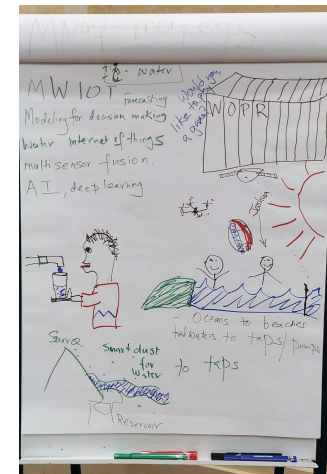 - water
MW IOT Forecasting
Modeling for decision making
Water Internet of things
multisensor fusion.
AI, deep learning
Would you
like to play
a game?
WOPR
Joshua
- Oceans to beaches
headwaters to taps/pumps
Source
Smart dust
for
water
to taps
Reservoir